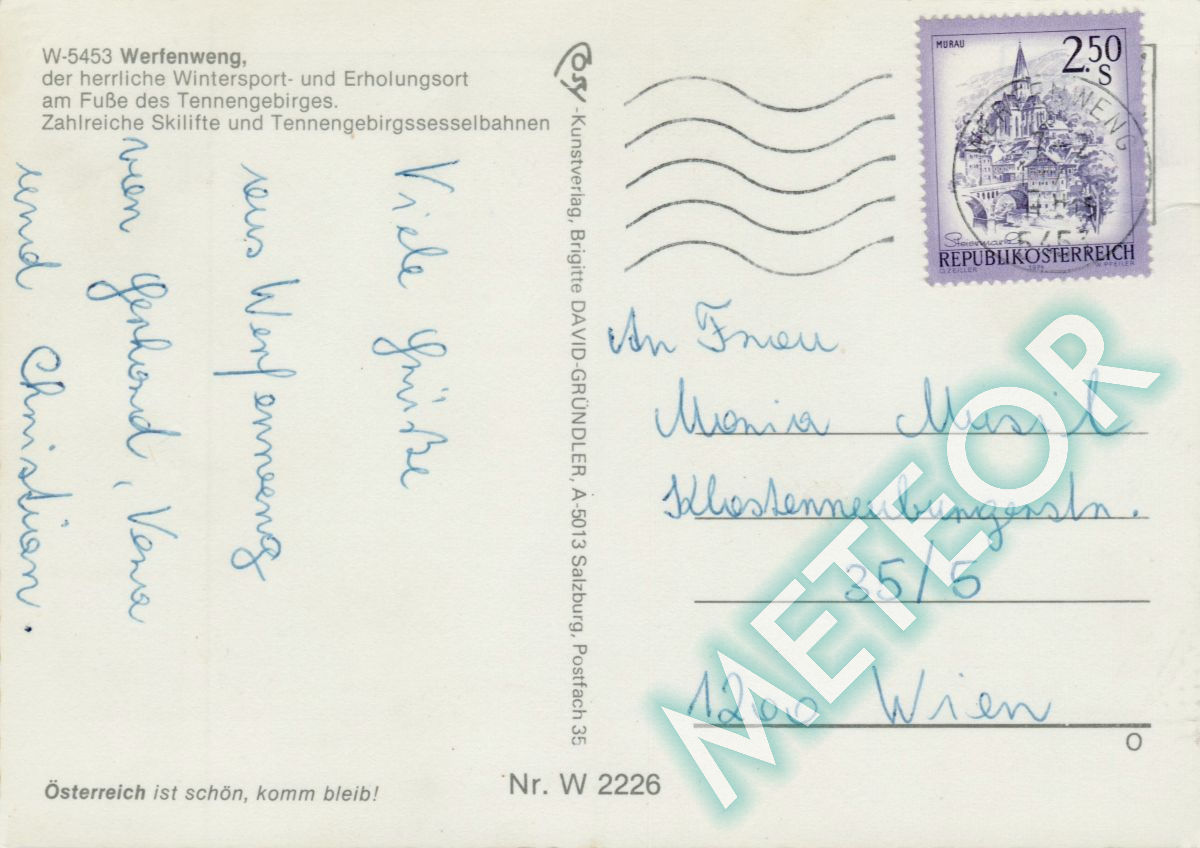 W-5453 Werfenweng,
der herrliche Wintersport- und Erholungsort
am Fuße des Tennengebirges.
Zahlreiche Skilifte und Tennengebirgssesselbahnen
Viele Grüße
aus Werfenweng
von Gerhard, Vena
und Christian.
Österreich ist schön, komm bleib!
-Kunstverlag, Brigitte DAVID-GRÜNDLER, A-5013 Salzburg, Postfach 35
Nr. W 2226
MURAU
2.50
S
Steiermark
REPUBLIK ÖSTERREICH
O. ZEILLER 1974 W. PFEILER
WERFENWENG
An Frau
Maria Musil
Klosterneuburgerstr.
35/5
1200 Wien
O
METEOR